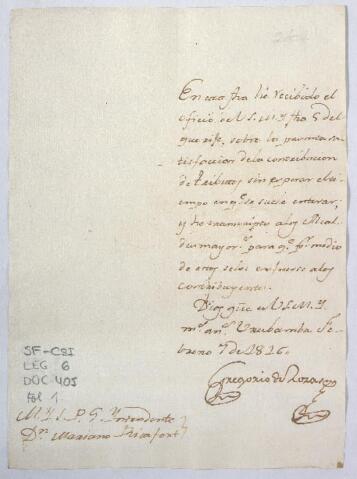 En esta fha hé recibido el
Oficio de V.S.M.Y. fha 5 del
que rije, sobre la pronta sa-
tisfaccion de la contribucion
de tributos sin esperar el ti-
empo en q.e se suele enterar,
y he transcripto a los Alcal-
des mayor.s para q.e p.r medio
de estos seles
contribuyentes.
Dios gũe a V.S.M.Y.
m.s an.s Urubamba Fe-
brero 7 de 1816.
Gregorio de Rozas
SF-CSI
LEG 6
DOC 405
fol 1
M.Y.S.P.G. Yntendente
Dn. Mariano Ricafort